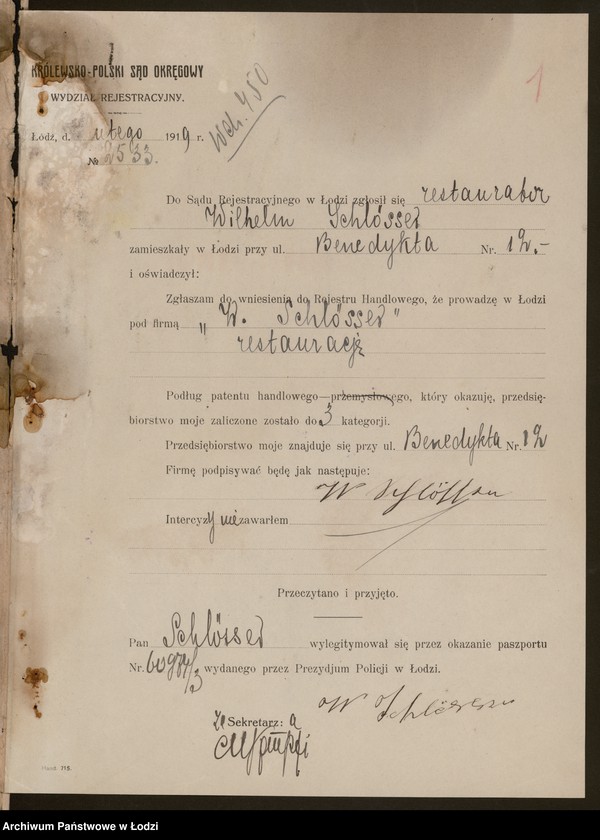 KRÓLEWSKO-POLSKI SĄD OKRĘGOWY
WYDZIAŁ REJESTRACYJNY.
1
Wch. 450
Łódź, d. lutego 1919 r.
№ 2533.
Do Sądu Rejestracyjnego w Łodzi zgłosił się restaurator
Wilhelm Schlösser
zamieszkały w Łodzi przy ul. Benedykta Nr. 12.-
i oświadczył:
Zgłaszam do wniesienia do Rejestru Handlowego, że prowadzę w Łodzi
pod firmą „W. Schlösser"
restaurację
Podług patentu handlowego—przemysłowego, który okazuję, przedsię-
biorstwo moje zaliczone zostało do 3 kategorji.
Przedsiębiorstwo moje znajduje się przy ul. Benedykta Nr. 12
Firmę podpisywać będę jak następuje:
W Schlösser
Intercyzy nie zawarłem
Przeczytano i przyjęto.
Pan Schlösser wylegitymował się przez okazanie paszportu
Nr. wydanego przez Prezydjum Policji w Łodzi.
W Schlösser
Za Sekretarz: a
Hand. 115.
Archiwum Państwowe w Łodzi